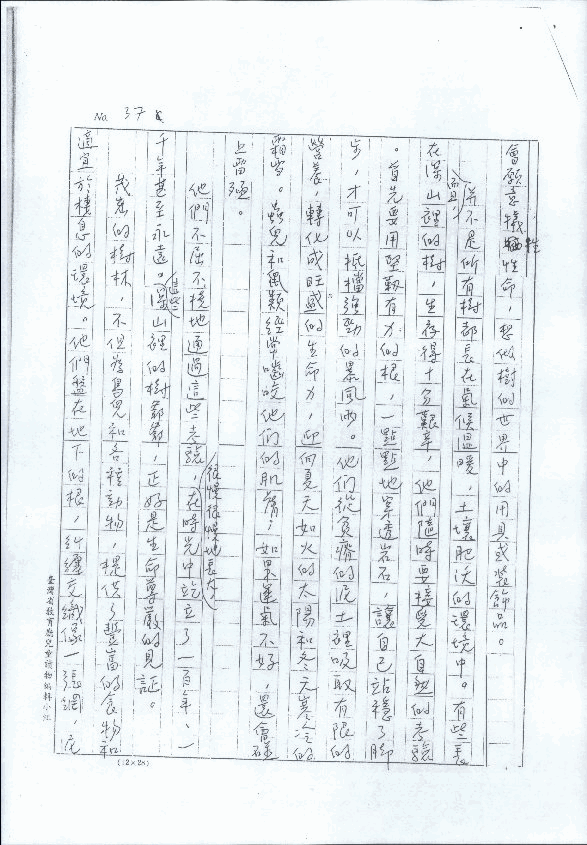 No. 37
會願意犧牲性命，想做樹的世界中的用具或裝飾品。
而且，並不是所有樹都長在氣候溫暖，土壤肥沃的環境中。有些長
在深山裡的樹，生存得十分艱辛，他們隨時要接受大自然的考驗
。首先要用堅韌有力的根，一點點地穿透岩石，讓自己站穩了腳
步，才可以抵擋強勁的暴風雨。他們從貧瘠的泥土裡吸取有限的
營養，轉化成旺盛的生命力，迎向夏天如火的太陽和冬天寒冷的
霜雪。蟲兒和鳳類經常啃咬他們的肌膚，如果運氣不好，還會碰
上雷殛。
他們不屈不撓地通過這些考驗，在時光中很慢很慢地長大，站立了一百年、一
千年甚至永遠。這些深山裡的樹爺爺，正好是生命尊嚴的見証。
茂密的樹林，不但為鳥兒和各種動物，提供了豐富的食物和
適宜於棲息的環境。他們盤在地下的根，糾纏交織像一張網，完
臺灣省教育廳兒童讀物編輯小組
(12×25)